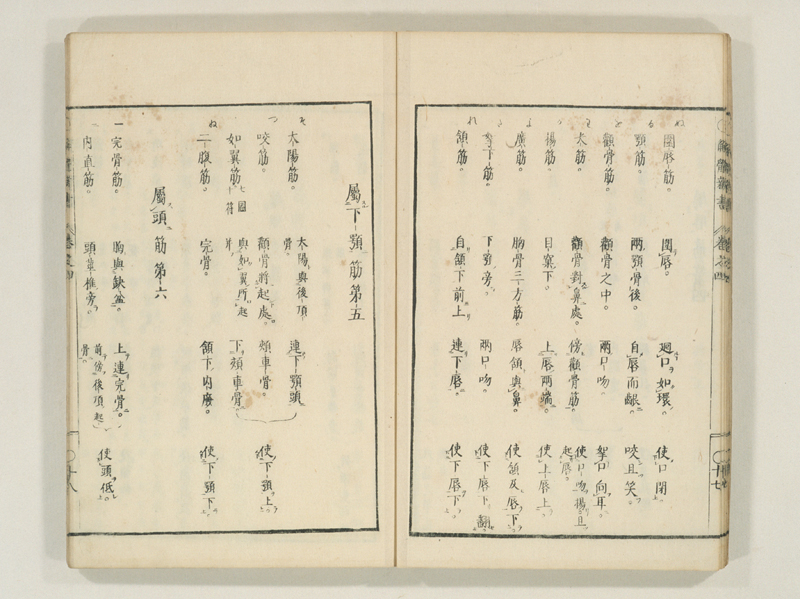 圍唇筋。 圍唇。 廻口如環。 使口閉。
頸筋。 兩顎骨後。 自唇而齦。 咬且笑。
顴骨筋。 顴骨之中。 兩口吻。 挈口向耳。
犬筋。 顴骨對鼻處。 傍顴骨筋。 使口吻揚且起唇。
揚筋。 目窠下。 上唇兩端。 使上唇上。
廣筋。 胸骨三方筋。 唇頷與鼻。 使頷及唇下。
下筋。 下頸旁。 兩口吻。 使下唇下翻。
頷筋。 自頷下前上。 連下唇。 使下唇下。
十七
屬下顎筋第五
太陽筋。 太陽與後頂骨。 連下顎頭
咬筋。 顴骨將起處。 頰車骨 使下顎上。
如翼筋。七圖符 與如翼所起并。 下頰車骨
二腹筋。 完骨。 頷下内廢。 使下頸下
屬頭筋第六
一完骨筋。 胸與缺盆。 上連完骨。
内直筋。 頭單椎旁。 前傍後項起骨 使頭低。
十八